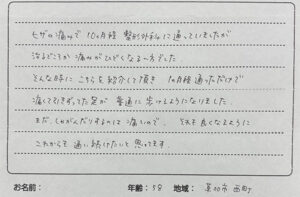 ヒザの痛みで 10ヵ月程 整形外科に通っていましたが
治るどころか 痛みがひどくなる一方でした。
そんな時に こちらを紹介して頂き 1ヵ月程 通っただけで
痛くて引きずってた足が 普通に歩けるようになりました。
まだ、しゃがんだりするのは 痛いので、 それも良くなるように
これからも 通い続けたいと 思ってます。
お名前： 年齢：58 地域： 草加市 西町